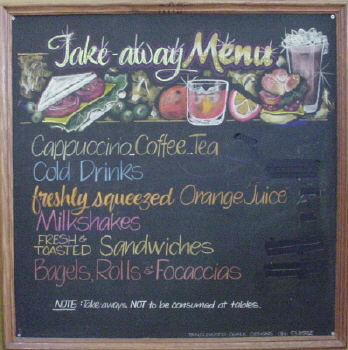 Take-away Menu
Cappuccino..Coffee..Tea
Cold Drinks
freshly squeezed Orange Juice
Milkshakes
FRESH & TOASTED Sandwiches
Bagels, Rolls & Focaccias
NOTE: Take-aways NOT to be consumed at tables.